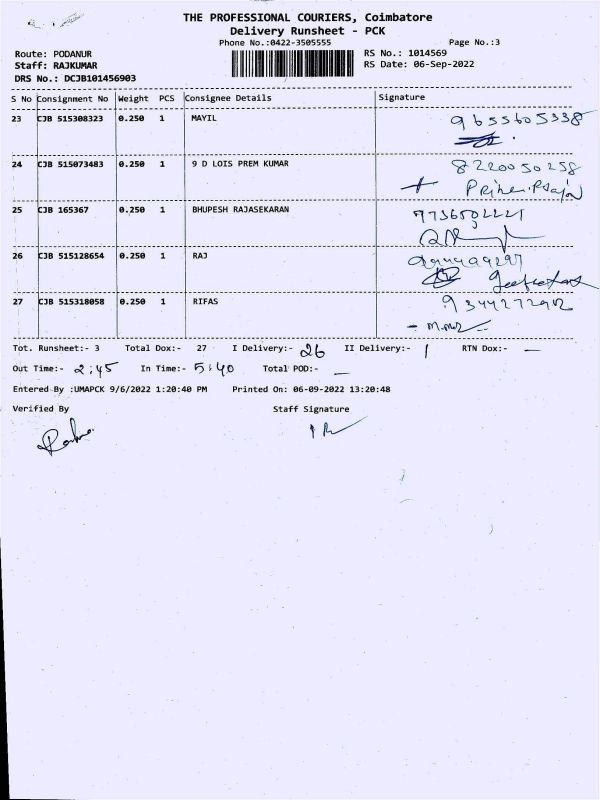 THE PROFESSIONAL COURIERS, Coimbatore
Delivery Runsheet - PCK
Phone No.:0422-3505555 Page No.:3
Route: PODANUR RS No.: 1014569
Staff: RAJKUMAR RS Date: 06-Sep-2022
DRS No.: DCJB101456903
S No Consignment No Weight PCS Consignee Details Signature
23 CJB 515308323 0.250 1 MAYIL 9655605338
24 CJB 515073483 0.250 1 9 D LOIS PREM KUMAR 8220050258
25 CJB 165367 0.250 1 BHUPESH RAJASEKARAN
26 CJB 515128654 0.250 1 RAJ
27 CJB 515318058 0.250 1 RIFAS
Tot. Runsheet:- 3 Total Dox:- 27 I Delivery:- 26 II Delivery:- 1 RTN Dox:- —
Out Time:- 2:45 In Time:- 5:40 Total POD:- —
Entered By :UMAPCK 9/6/2022 1:20:40 PM Printed On: 06-09-2022 13:20:48
Verified By Staff Signature